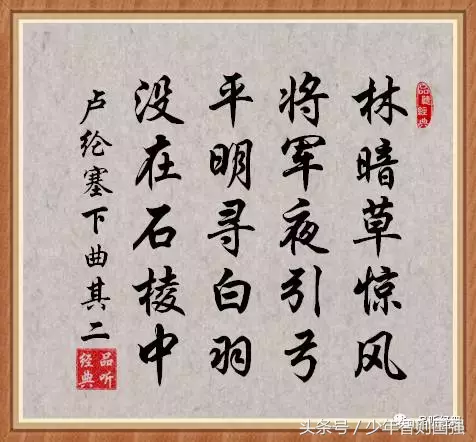 品聽經典
林暗草惊风
将军夜引弓
平明寻白羽
没在石棱中
卢纶塞下曲其二
品听经典
头条号/少年智则国强